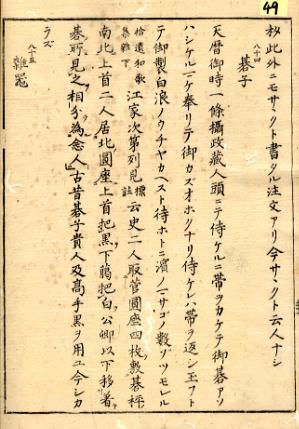 49
杪此外ニモサヽクト書タル注文アリ今サヽクト云人ナシ
八十四 碁子
天暦御時一條攝政藏人頭ニテ侍ケルニ帶ヲカケテ御碁アソ
ハシケル一ケ奉リテ御カズオホクナリ侍ケレハ帶ヲ返シ玉フト
テ御製白浪ノウチヤカヘスト待ホトニ濱ノマサゴノ數ゾツモレル
拾遺和歌集雜下 江家次第列見標註云史二人取菅圓座四枚敷碁枰
南北上首二人居北圓座上首把黒下﨟把白公卿以下移著
碁所見之相分為念人古昔碁子貴人及高手黒ヲ用ユ今シカ
ラズ
八十五 雜